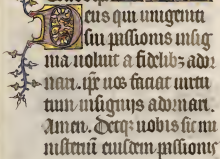 Deus qui unigeniti
sui passionis insig
nia voluit a fidelib⁹ ador
nari. ip̄e vos faciat virtu
tum insignijs adornari.
Amen. Detq̄ vobis sic mi
nisterium eiusdem passionis